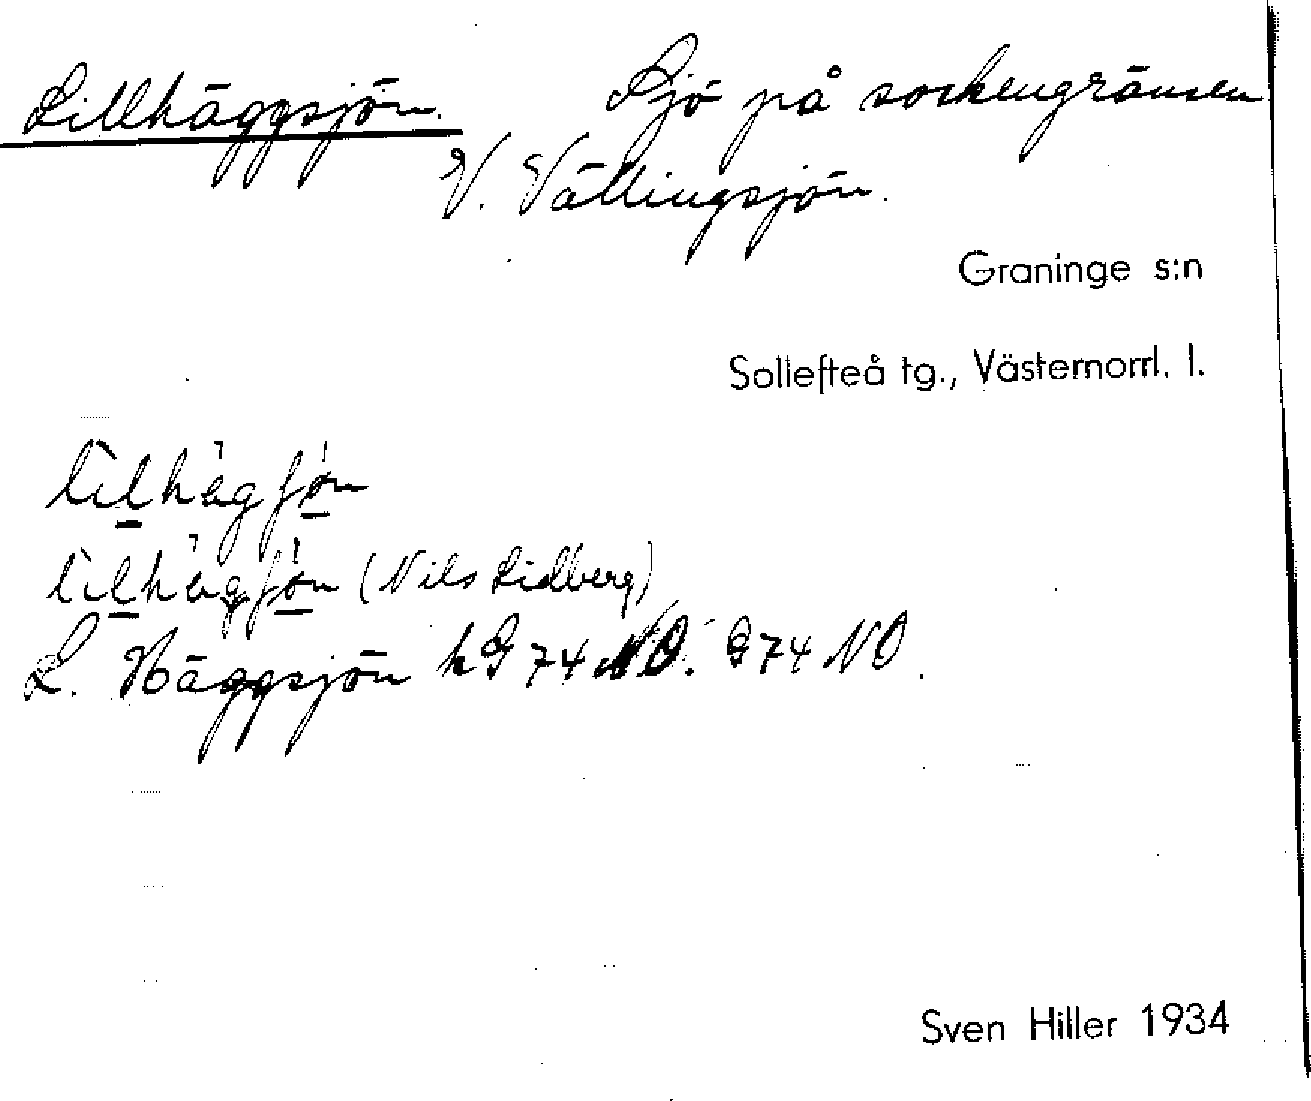 Lillhäggsjön. Sjö på sockengränsen
V. Vällingsjön.
Graninge s:n
Sollefteå tg., Västernorrl. l.
(Nils Lidberg)
L. Häggsjön k G 74 NO. G 74 NO.
Sven Hiller 1934